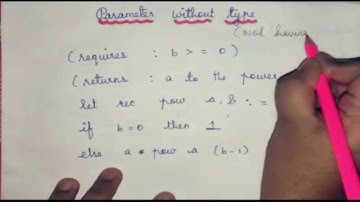 Parameter without type
(Not having
(requires : b > = 0)
(returns : a to the power
let rec pow a, b : =
if b=0 then 1
else a * pow a (b-1)